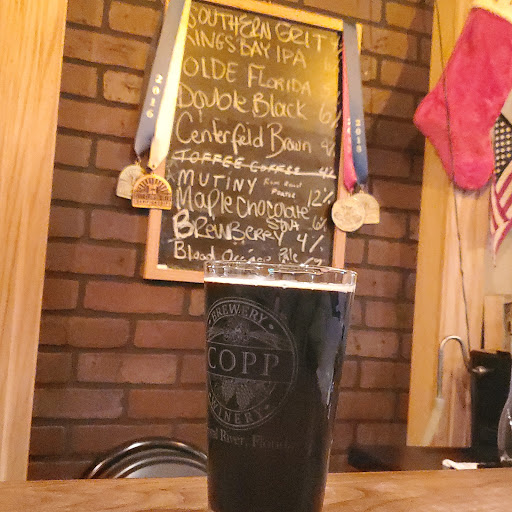 SOUTHERN GRIT
KINGS BAY IPA 6
OLDE FLORIDA 5
Double Black 6%
Centerfield Brown 4%
TOFFEE COFFEE 4%
MUTINY Rum Barrel Porter 12%
Maple Chocolate Stna 6%
BrewBerry 4%
Blood Orange Pale
2016
2018
BREWERY
COPP
WINERY
River, Florida